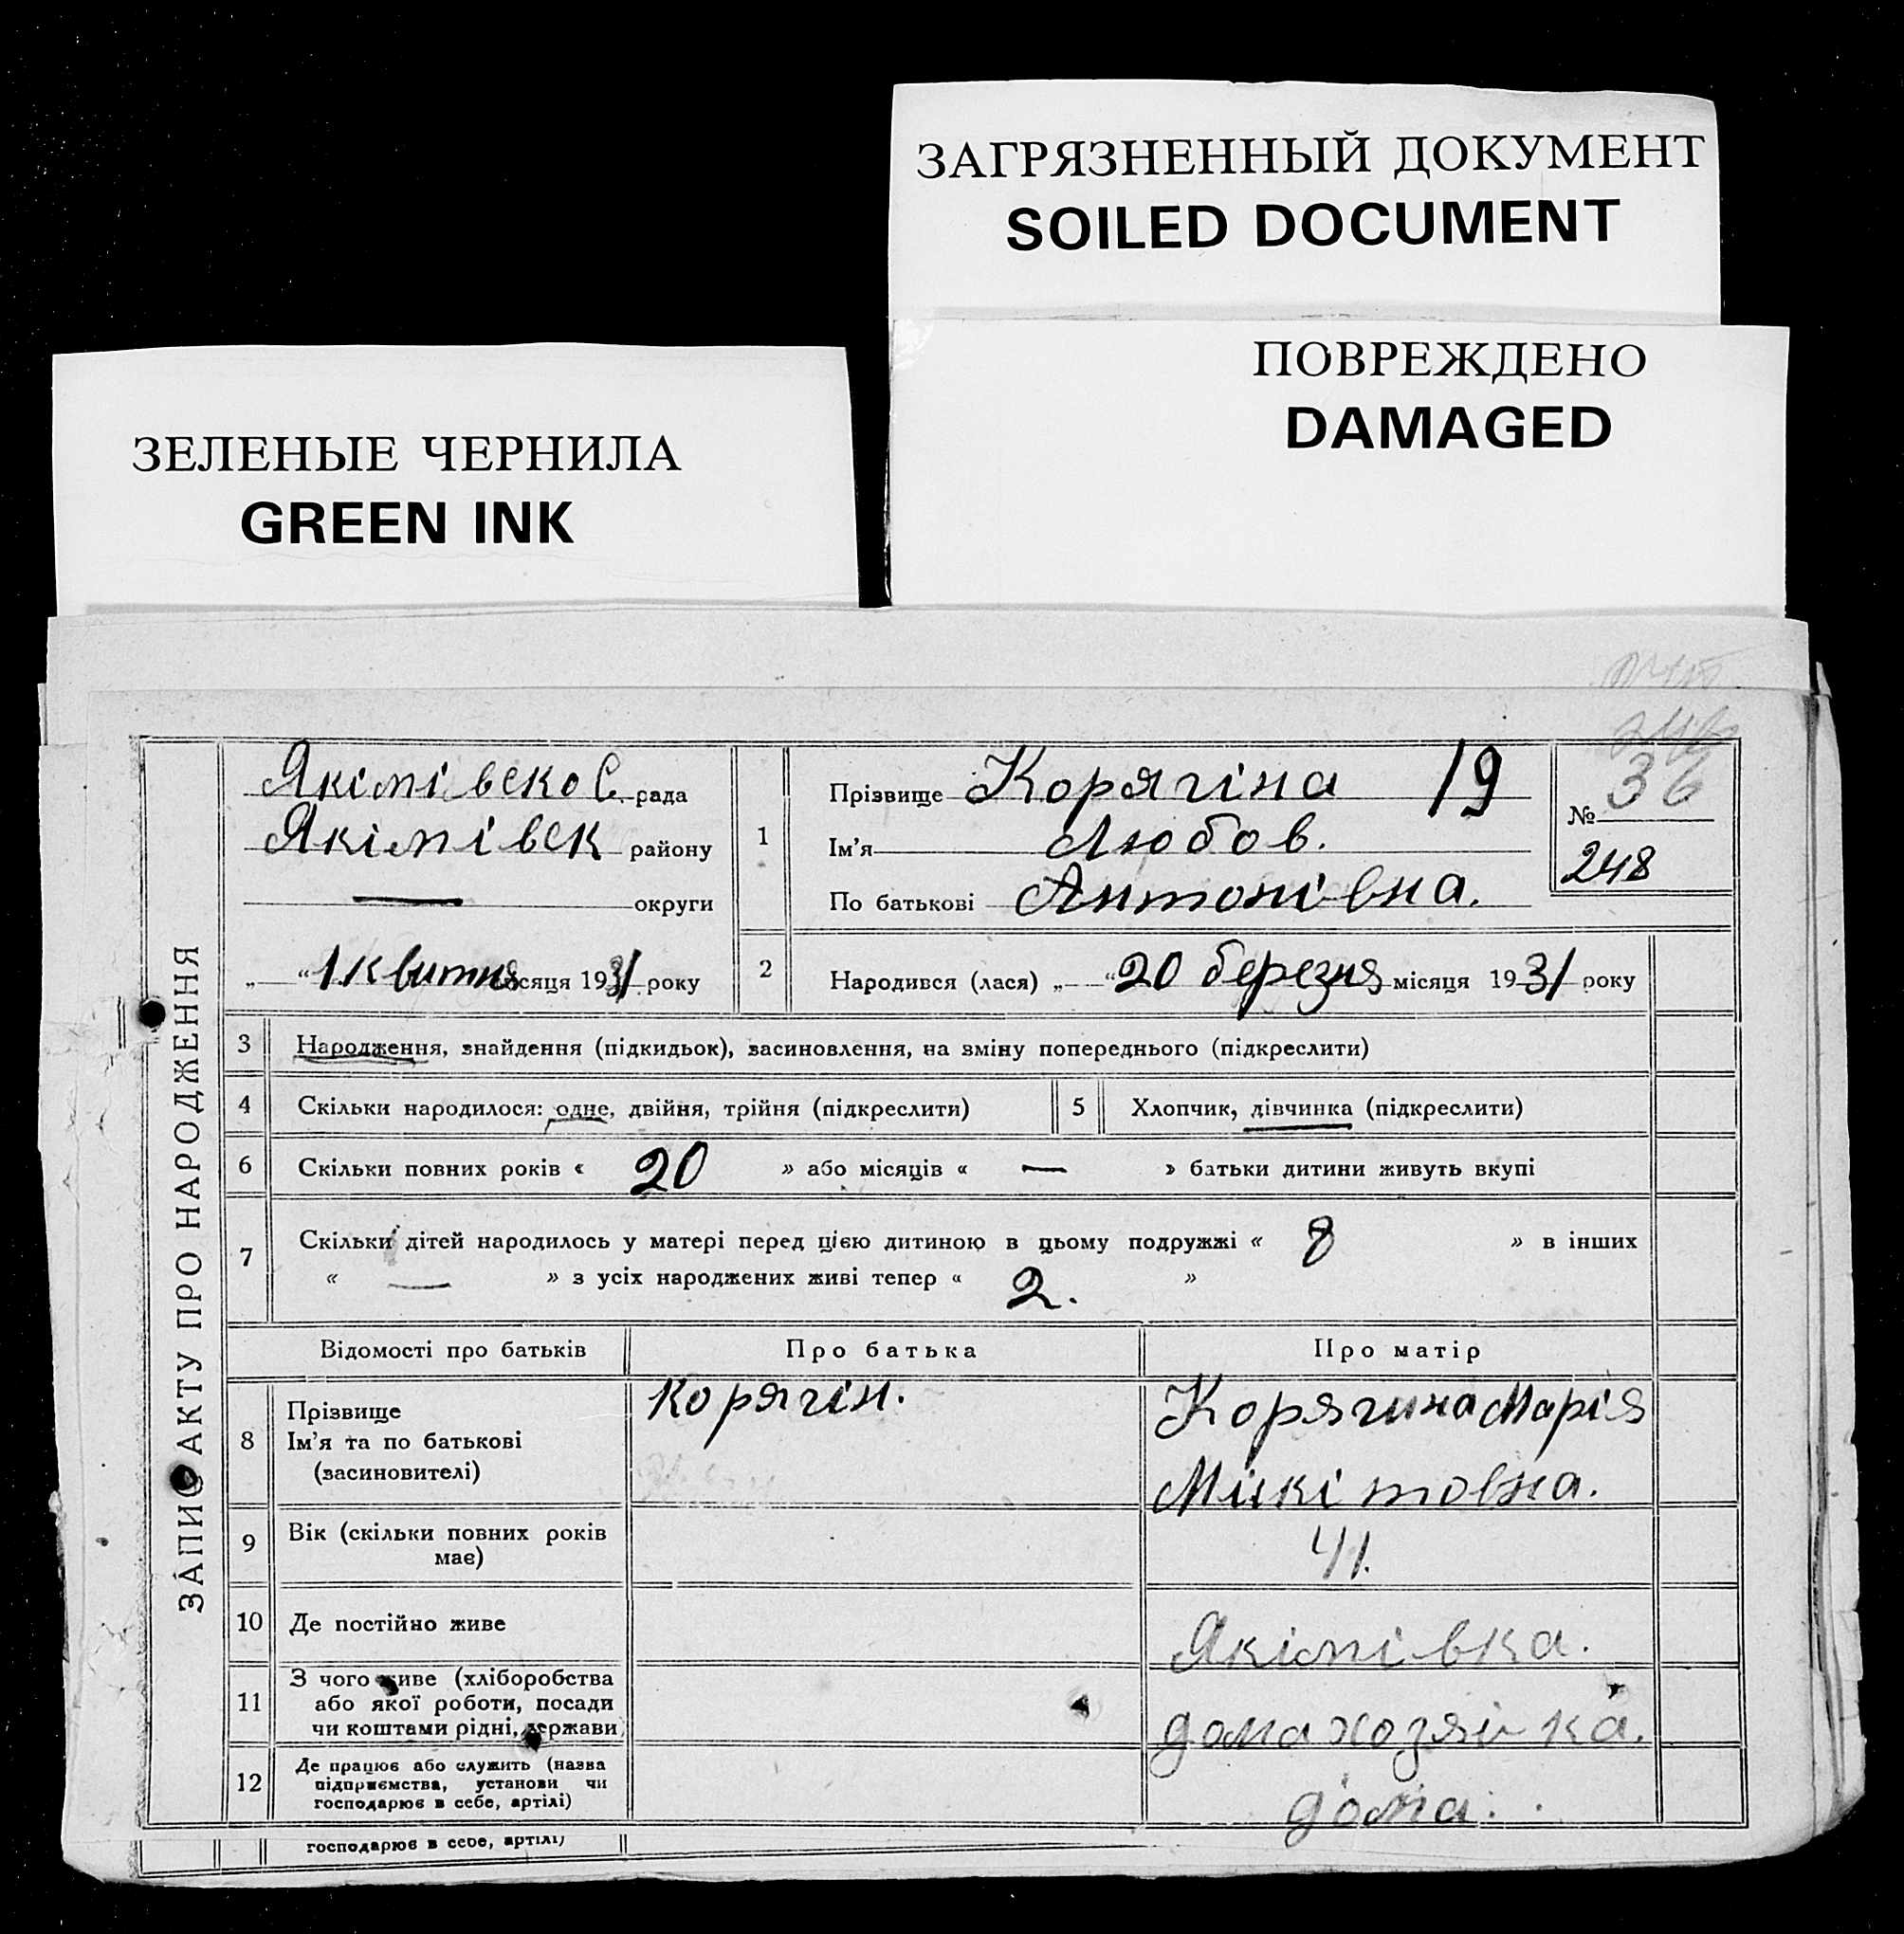 ЗАГРЯЗНЕННЫЙ ДОКУМЕНТ
SOILED DOCUMENT
ПОВРЕЖДЕНО
DAMAGED
ЗЕЛЕНЫЕ ЧЕРНИЛА
GREEN INK
ЗАПИС АКТУ ПРО НАРОДЖЕННЯ
Якімівеко С. рада
Якімівек району
— округи
„ “ 1 квитня місяця 1931 року
1
Прізвище Корягіна 19
Ім'я Любов.
По батькові Антонівна.
36
№
248
2
Народився (лася) „ “ 20 березня місяця 1931 року
3 Народження, знайдення (підкидьок), засиновлення, на зміну попереднього (підкреслити)
4 Скільки народилося: одне, двійня, трійня (підкреслити) 5 Хлопчик, дівчинка (підкреслити)
6 Скільки повних років « 20 » або місяців « — » батьки дитини живуть вкупі
7 Скільки дітей народилось у матері перед цією дитиною в цьому подружжі « 8 » в інших
« — » з усіх народжених живі тепер « 2. »
Відомості про батьків Про батька Про матір
8 Прізвище
Ім'я та по батькові
(засиновителі)
Корягін.
Корягина Марія
Мікітовна.
9 Вік (скільки повних років
має)
41.
10 Де постійно живе Якімівка.
11 З чого живе (хліборобства
або якої роботи, посади
чи коштами рідні, держави)
домахозяйка.
12 Де працює або служить (назва
підприємства, установи чи
господарює в себе, артілі)
дома.
господарює в себе, артілі)